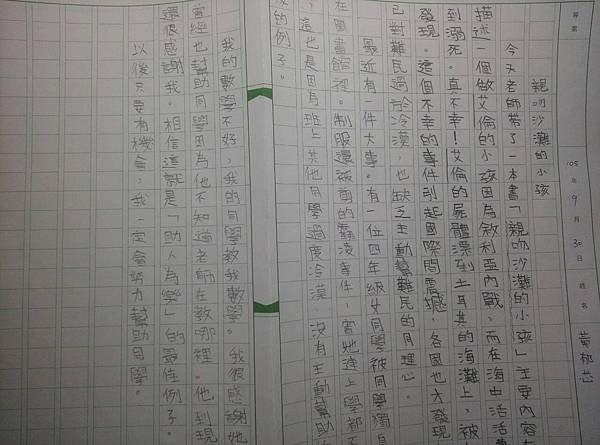 親吻沙灘的小孩
今天老師帶了一本書「親吻沙灘的小孩」主要內容
描述一個做艾倫的小孩因為敘利亞內戰 而在海中活活
到溺死。真不幸!艾倫的屍體漂到土耳其的海灘上,被
發現。這個不幸的事件引起國際間震撼,各國也才發現
己對難民過於冷漠,也缺乏主動幫難民的同理心。
最近有一件大事。有一位四年級女同學被同學獨自
在圖書館裡。制服還被剪的霸凌事件,害她連上學都不
這也是因為班上其他同學過度冷漠,沒有主動幫助
的例子。
我的數學不好,我的同學教我數學。我很感謝她
曾經也幫助同學因為他不知道老師在教哪裡。他到現
還很感謝我。相信這就是「助人為樂」的最佳例子。
以後只要有機會,我一定會努力幫助同學。
105年9月30日 姓名 黃郁芯